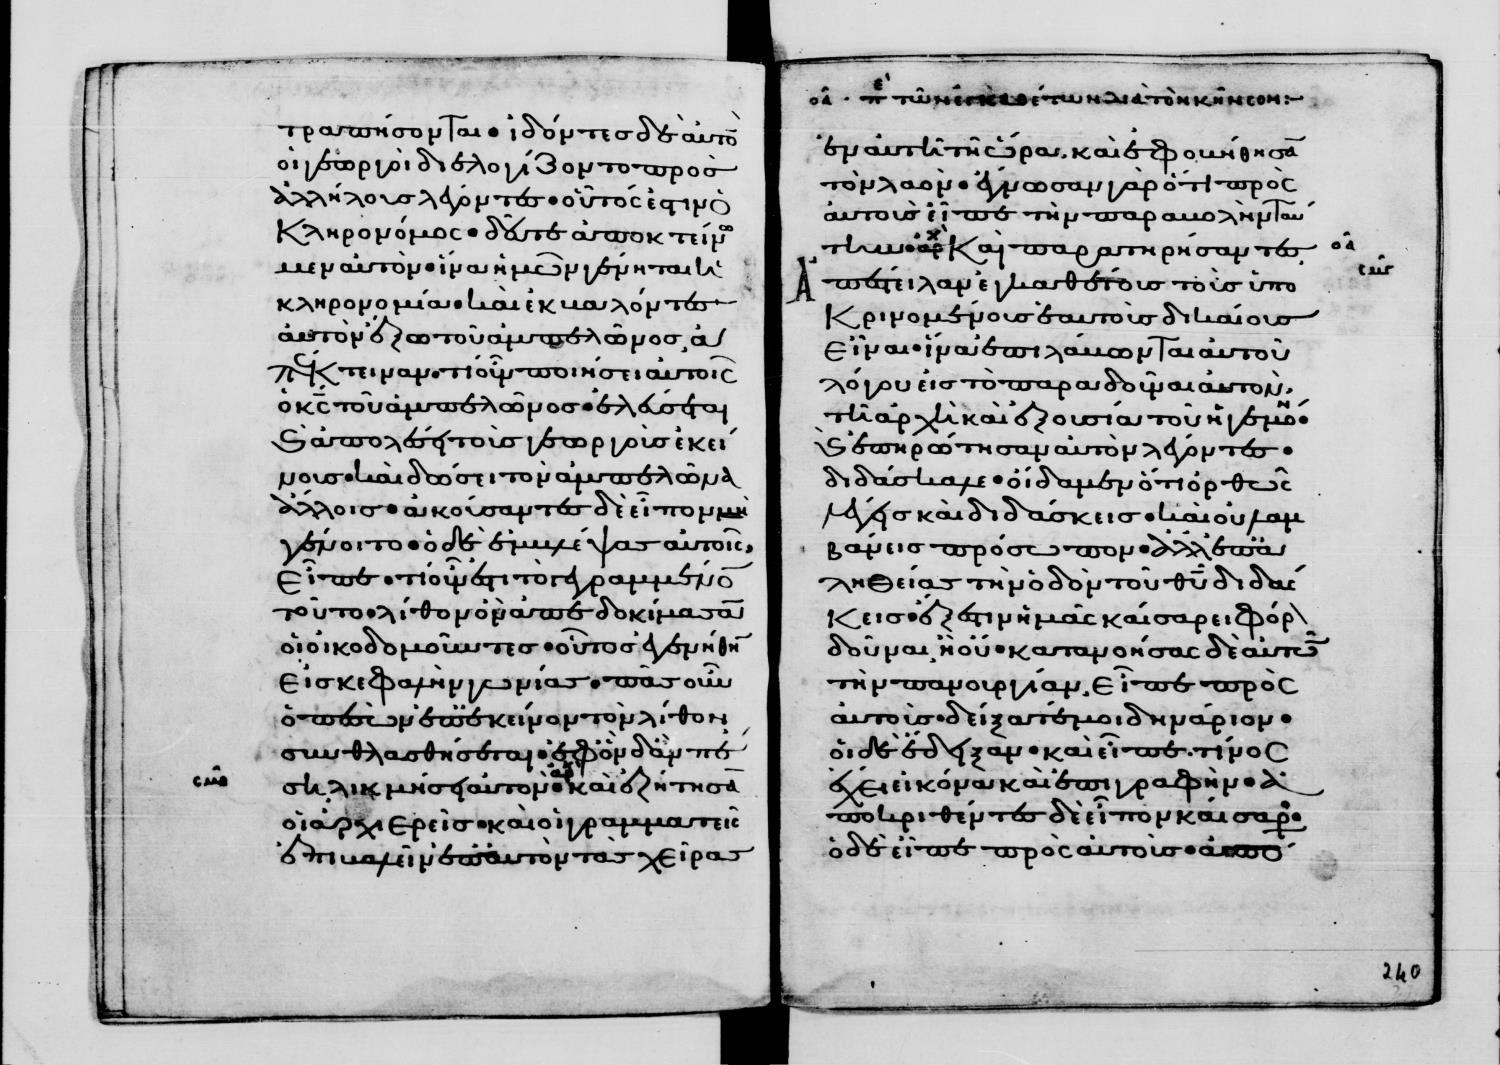 τραπήσονται· ἰδόντες δὲ αὐτὸ
οἱ γεωργοὶ διελογίζοντο πρὸς
ἀλλήλους λέγοντες· οὗτός ἐστιν ὁ
κληρονόμος· δεῦτε ἀποκτείνω
μεν αὐτὸν· ἵνα ἡμῶν γένηται ἡ
κληρονομία· καὶ ἐκβαλόντες
αὐτὸν ἔξω τοῦ ἀμπελῶνος, ἀ
πέκτειναν· τί οὖν ποιήσει αὐτοῖς
ὁ κς τοῦ ἀμπελῶνος· ἐλεύσεται
καὶ ἀπολέσει τοὺς γεωργοὺς ἐκεί
νους· καὶ δώσει τὸν ἀμπελῶνα
ἄλλοις· ἀκούσαντες δὲ εἶπον μὴ
γένοιτο· ὁ δὲ ἐμβλέψας αὐτοῖς,
εἶπε· τί οὖν ἐστι τὸ γεγραμμένον
τοῦτο· λίθον ὃν ἀπεδοκίμασαν
οἱ οἰκοδομοῦντες· οὗτος ἐγενήθη
εἰς κεφαλὴν γωνίας· πᾶς οὖν
ὁ πεσὼν ἐπ ἐκεῖνον τὸν λίθον
συνθλασθήσεται· ἐφ ὃν δ ἂν πέ
ση, λικμήσει αὐτόν· καὶ ἐζήτησαν
σμα
οἱ ἀρχιερεῖς· καὶ οἱ γραμματεῖς
ἐπιβαλεῖν ἐπ αὐτὸν τὰς χεῖρας
οα · πε τῶν διὰ τὸν κῆνσον:
ἐν αὐτῆ τῆ ὥρα, καὶ ἐφοβήθησαν
τὸν λαόν· ἔγνωσαν γὰρ ὅτι πρὸς
αὐτοὺς εἶπε τὴν παραβολὴν ταύ
την· αρχ Καὶ παρατηρήσαντες,
οα
σμβ
ἀπέστειλαν ἐγκαθέτους τοὺς ὑπο
κρινομένους ἑαυτοὺς δικαίους
εἶναι· ἵνα ἐπιλάβωνται αὐτοῦ
λόγου εἰς τὸ παραδοῦναι αὐτὸν,
τῆ ἀρχῆ καὶ ἐξουσία τοῦ ἡγεμόνος·
καὶ ἐπηρώτησαν αὐτὸν λέγοντες·
διδάσκαλε· οἴδαμεν ὅτι ὀρθῶς
λέγεις καὶ διδάσκεις· καὶ οὐ λαμ
βάνεις πρόσωπον· ἀλλ ἐπ ἀ
ληθείας τὴν ὁδὸν τοῦ θυ διδάς
κεις· ἔξεστιν ἡμᾶς καίσαρει φόρον
δοῦναι, ἢ οὔ· κατανοήσας δὲ αὐτῶν
τὴν πανουργίαν, εἶπε πρὸς
αὐτούς· δείξατέ μοι δηνάριον·
οἱ δὲ ἔδειξαν· καὶ εἶπε· τίνος
ἔχει εἰκόνα καὶ ἐπιγραφήν· ἀ
ποκριθέντες δὲ εἶπον καίσαρος·
ὁ δὲ εἶπε πρὸς αὐτούς· ἀπό
240